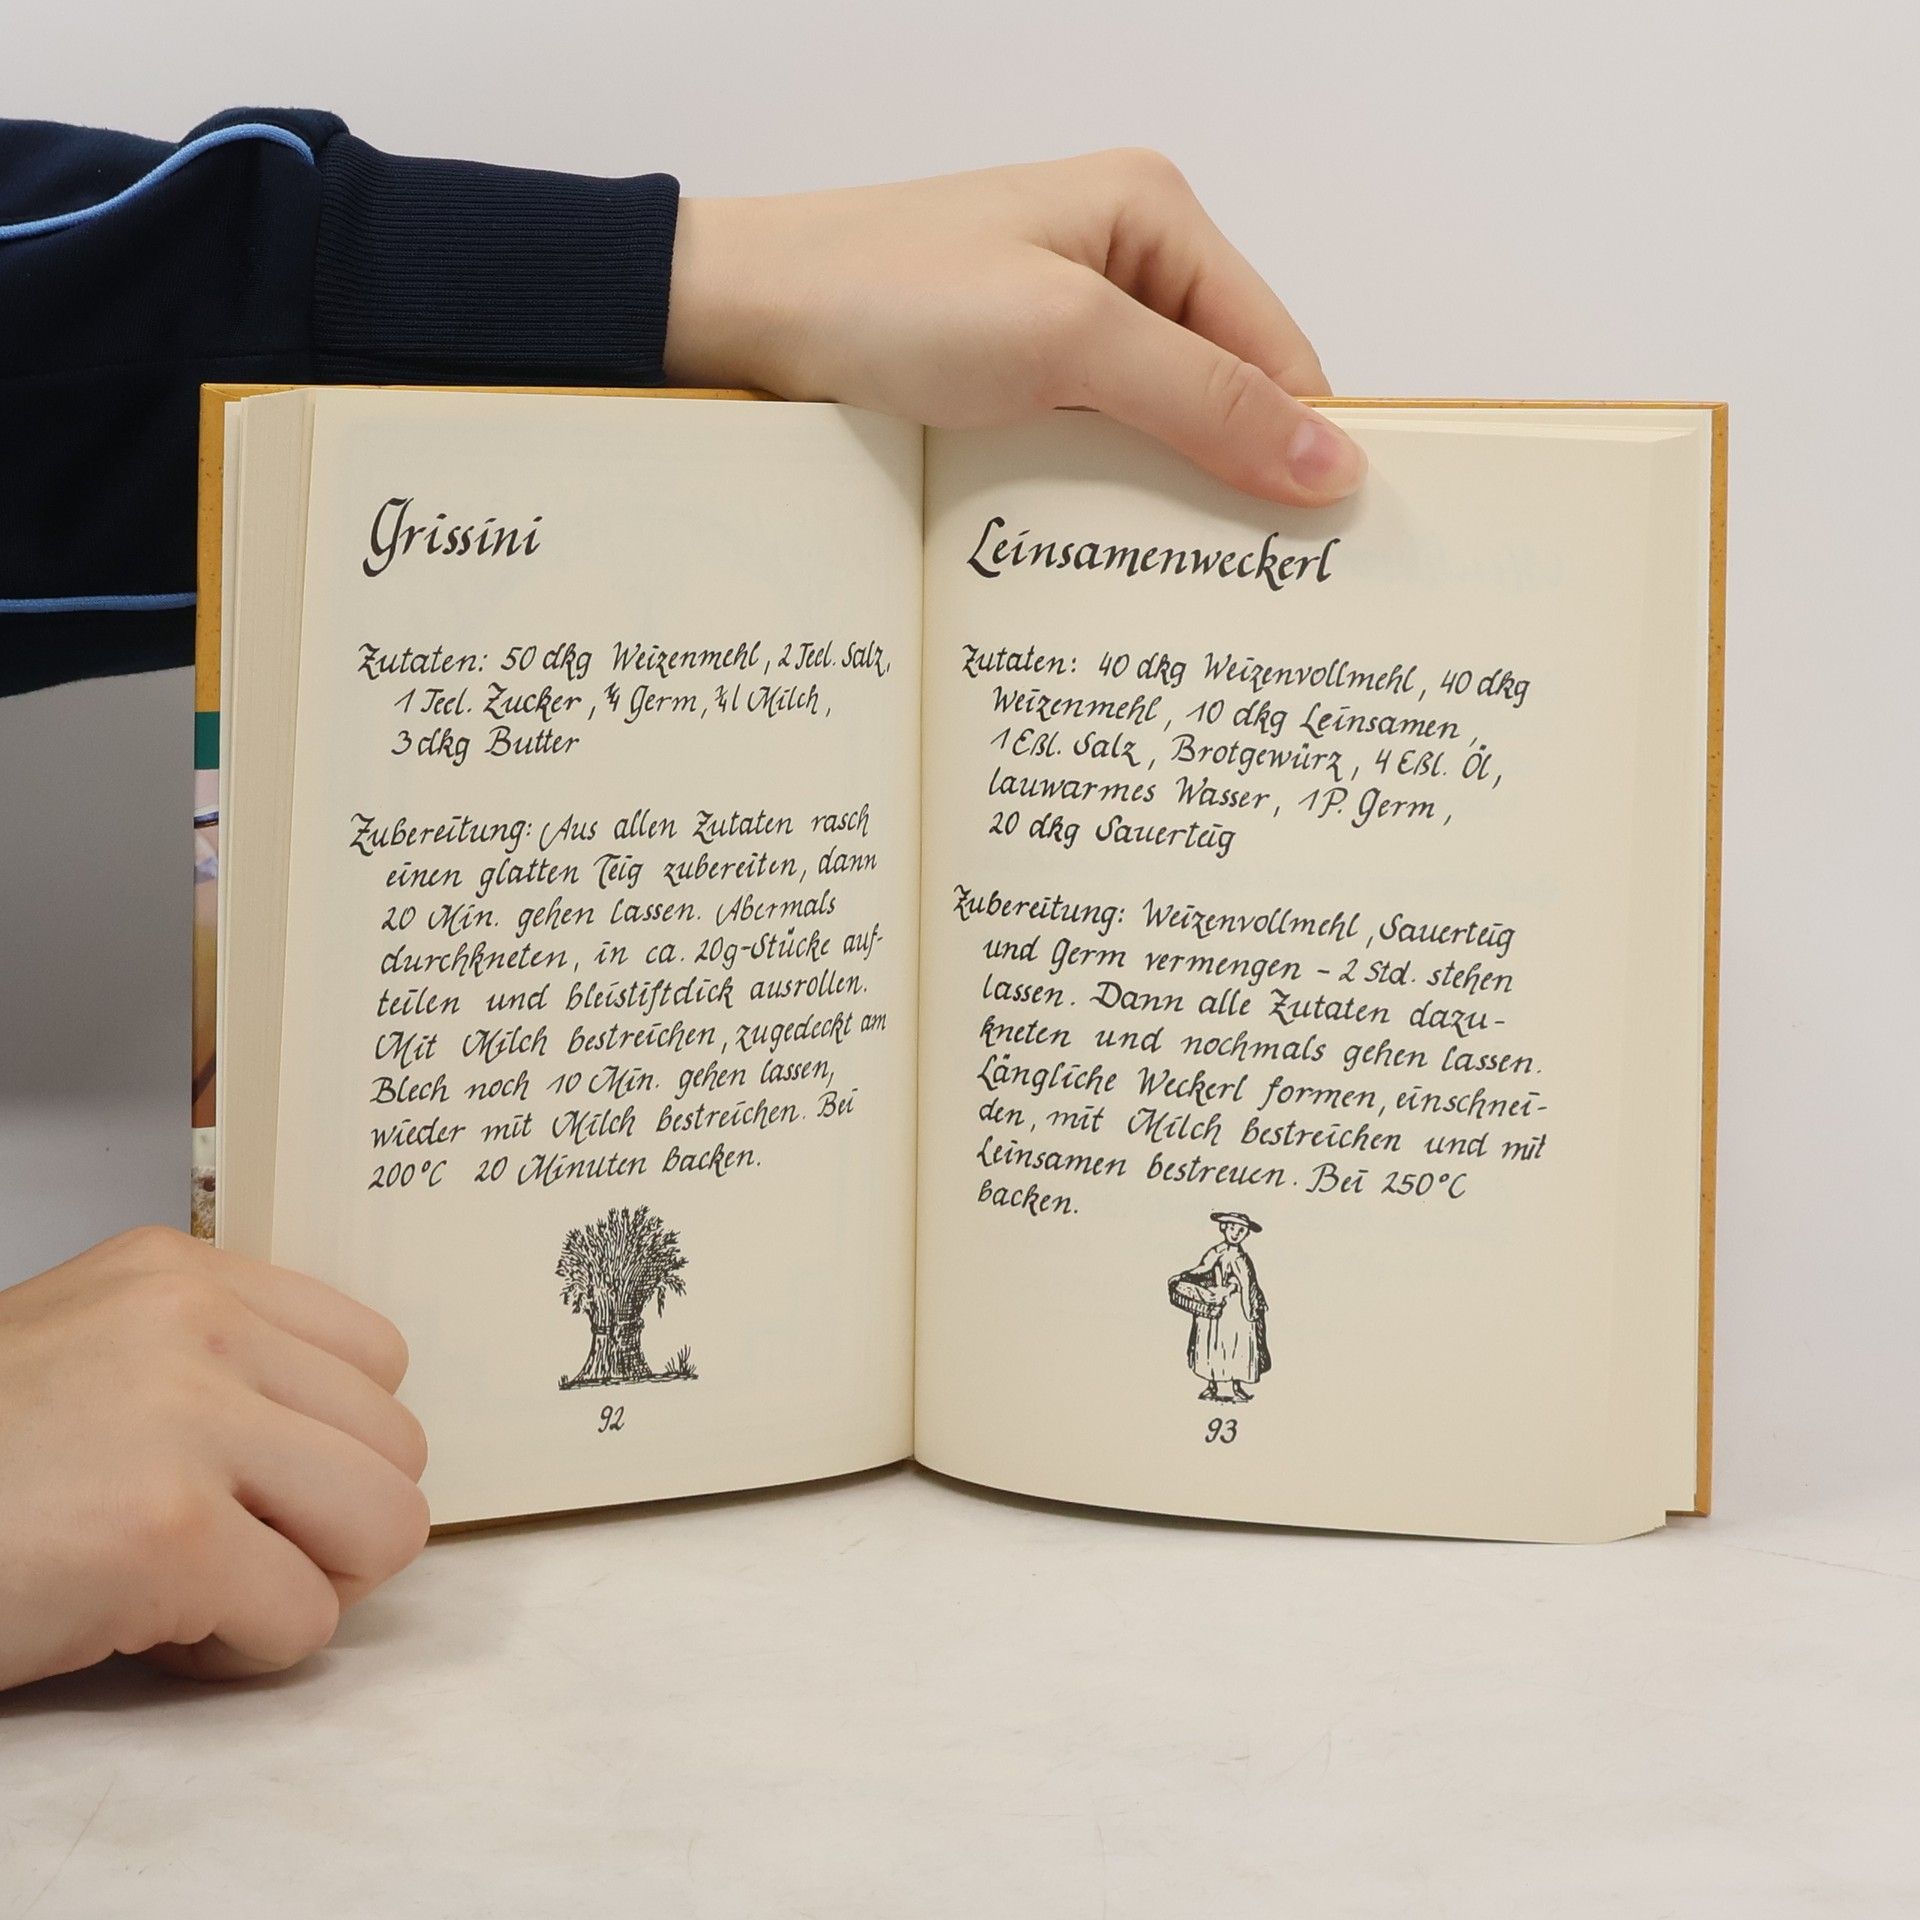 Grissini
Zutaten: 50 dkg Weizenmehl, 2 Teel. Salz,
1 Teel. Zucker, ¾ Germ, ¾ l Milch,
3 dkg Butter
Zubereitung: Aus allen Zutaten rasch
einen glatten Teig zubereiten, dann
20 Min. gehen lassen. Abermals
durchkneten, in ca. 20g-Stücke auf-
teilen und bleistiftdick ausrollen.
Mit Milch bestreichen, zugedeckt am
Blech noch 10 Min. gehen lassen,
wieder mit Milch bestreichen. Bei
200°C 20 Minuten backen.
92
Leinsamenweckerl
Zutaten: 40 dkg Weizenvollmehl, 40 dkg
Weizenmehl, 10 dkg Leinsamen,
1 Eßl. Salz, Brotgewürz, 4 Eßl. Öl,
lauwarmes Wasser, 1 P. Germ,
20 dkg Sauerteig
Zubereitung: Weizenvollmehl, Sauerteig
und Germ vermengen - 2 Std. stehen
lassen. Dann alle Zutaten dazu-
kneten und nochmals gehen lassen.
Längliche Weckerl formen, einschnei-
den, mit Milch bestreichen und mit
Leinsamen bestreuen. Bei 250°C
backen.
93